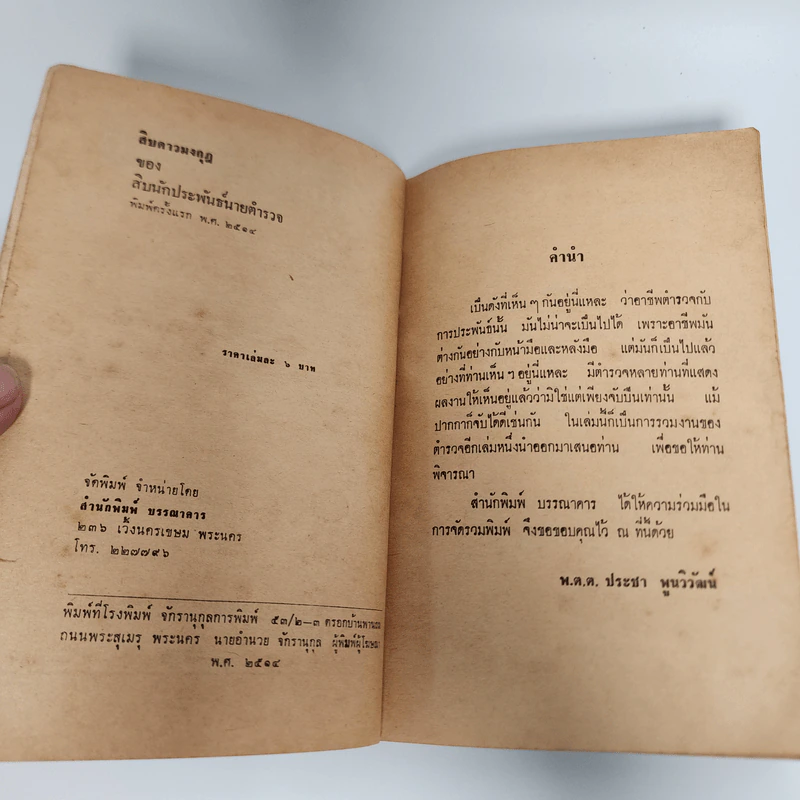 สิบดาวมงกุฎ
ของ
สิบนักประพันธ์นายตำรวจ
พิมพ์ครั้งแรก พ.ศ. ๒๕๑๔
ราคาเล่มละ ๖ บาท
จัดพิมพ์ จำหน่ายโดย
สำนักพิมพ์ บรรณาคาร
๒๓๖ เวิ้งนครเขษม พระนคร
โทร. ๒๒๗๗๙๖
พิมพ์ที่โรงพิมพ์ จักรานุกูลการพิมพ์ ๕๓/๒-๓ ตรอกบ้านพานถม
ถนนพระสุเมรุ พระนคร นายอำนวย จักรานุกูล ผู้พิมพ์ผู้โฆษณา
พ.ศ. ๒๕๑๔
คำนำ
เป็นดังที่เห็น ๆ กันอยู่นี่แหละ ว่าอาชีพตำรวจกับ
การประพันธ์นั้น มันไม่น่าจะเป็นไปได้ เพราะอาชีพมัน
ต่างกันอย่างกับหน้ามือและหลังมือ แต่มันก็เป็นไปแล้ว
อย่างที่ท่านเห็น ๆ อยู่นี่แหละ มีตำรวจหลายท่านที่แสดง
ผลงานให้เห็นอยู่แล้วว่ามิใช่แต่เพียงจับปืนเท่านั้น แม้
ปากกาก็จับได้ดีเช่นกัน ในเล่มนี้ก็เป็นการรวมงานของ
ตำรวจอีกเล่มหนึ่งนำออกมาเสนอท่าน เพื่อขอให้ท่าน
พิจารณา
สำนักพิมพ์ บรรณาคาร ได้ให้ความร่วมมือใน
การจัดรวมพิมพ์ จึงขอขอบคุณไว้ ณ ที่นี้ด้วย
พ.ต.ต. ประชา พูนวิวัฒน์